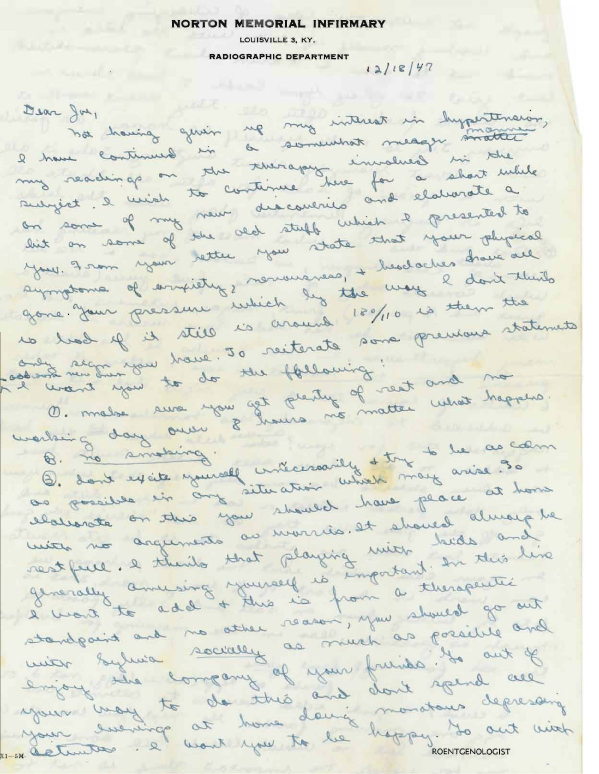 NORTON MEMORIAL INFIRMARY
LOUISVILLE 3, KY.
RADIOGRAPHIC DEPARTMENT
12/18/47
Dear Joe,
Not having given up my interest in hypertension,
I have continued in a somewhat meager matter manner
my readings on the therapy involved in the
subject. I wish to continue here for a short while
on some of my new discoveries and elaborate a
bit on some of the old stuff which I presented to
you. From your letter you state that your physical
symptoms of anxiety, nervousness, + headaches have all
gone. Your pressure which by the way I don't think
is bad if it still is around 180/110 is then the
only sign you have. To reiterate some previous statements
+ add some new ones
I want you to do the following:
①. make sure you get plenty of rest and no
working day over 8 hours no matter what happens.
②. no smoking.
③. dont excite yourself unnecessarily + try to be as calm
as possible in any situation which may arise. To
elaborate on this you should have peace at home
with no arguments or worries. It should always be
restfull. I think that playing with kids and
generally amusing yourself is important. In this line
I want to add + this is from a therapeutic
standpoint and no other reason, you should go out
with Sylvia socially as much as possible and
enjoy the company of your friends. Go out of
your way to do this and don't spend all
your evenings at home doing monotous depressing
activities. I want you to be happy. Go out with
X1-5M
ROENTGENOLOGIST